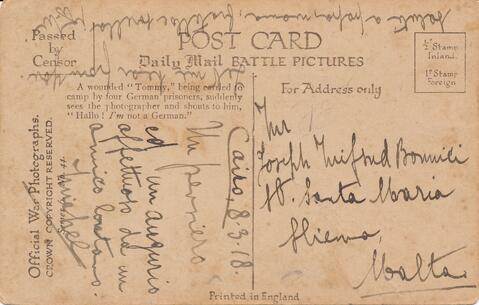 saluti a papa, mamma, fratelli
let me hear from you
Passed
by
Censor
POST CARD
Daily Mail BATTLE PICTURES
½ᵈ Stamp
Inland.
1ᵈ Stamp
Foreign
A wounded "Tommy," being carried to
camp by four German prisoners, suddenly
sees the photographer and shouts to him,
"Hallo! I'm not a German."
For Address only
Official War Photographs.
CROWN COPYRIGHT RESERVED.
Cairo, 8.3.18.
Un pensiero
ed un augurio
affettuoso da un
amico lontano.
Joseph Bonnici
St. Santa Maria
Sliema,
Malta
Printed in England